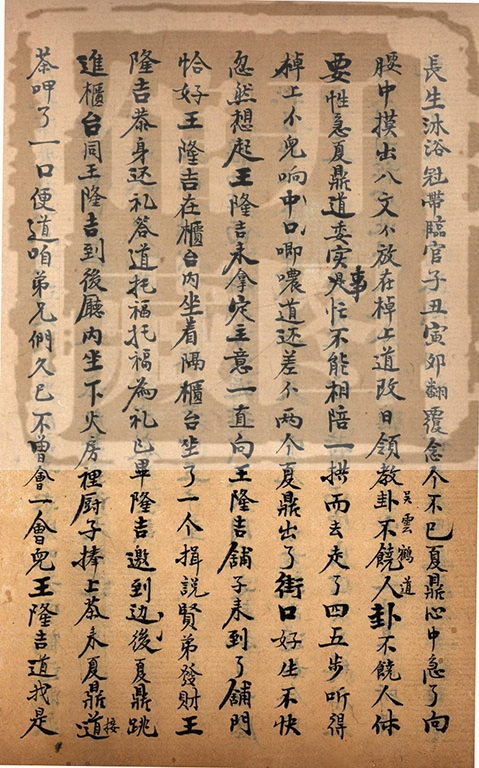 長生沐浴冠帶臨官子丑寅卯翻覆念个不已夏鼎心中急了向
腰中摸出八文不放在棹上道改日領教卦不饒人卦不饒人休
吴雲鶴道
要性急夏鼎道委实是忙不能相陪一拱而去走了四五步听得
事
棹上不兒响中口唧噥道还差个两个夏鼎出了街口好生不快
忽然想起王隆吉未拿定主意一直向王隆吉舖子来到了舖門
恰好王隆吉在櫃台內坐着隔櫃台坐了一个揖説賢弟發財王
隆吉恭身还礼答道托福托福為礼已畢隆吉邀到边後夏鼎跳
進櫃台同王隆吉到後廳內坐下火房裡厨子捧上茶来夏鼎道
接
茶呷了一口便道咱弟兄們久已不曾會一會兒王隆吉道我是